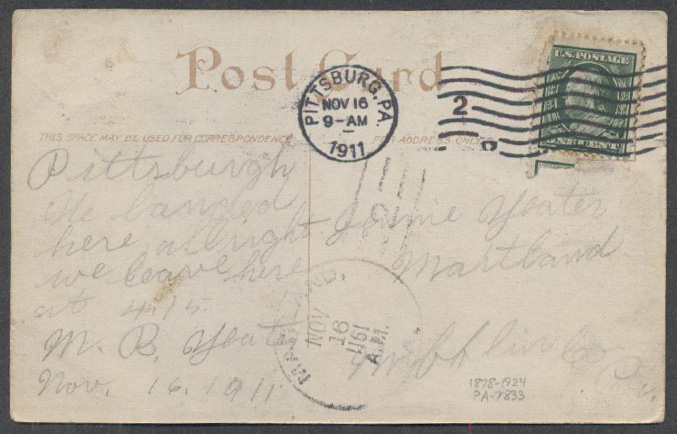 Post Card
PITTSBURG, PA
NOV 16
9-AM
1911
2
U.S. POSTAGE
THIS SPACE MAY BE USED FOR CORRESPONDENCE
FOR ADDRESS ONLY
Pittsburgh
We landed
here allright
we leave here
at 4.15.
M. B. Yeater
Nov. 16. 1911
Yeater
Martland
Co
Pa.
LAND,
NOV
16
1911
A.M.
1878-1924
PA-7833